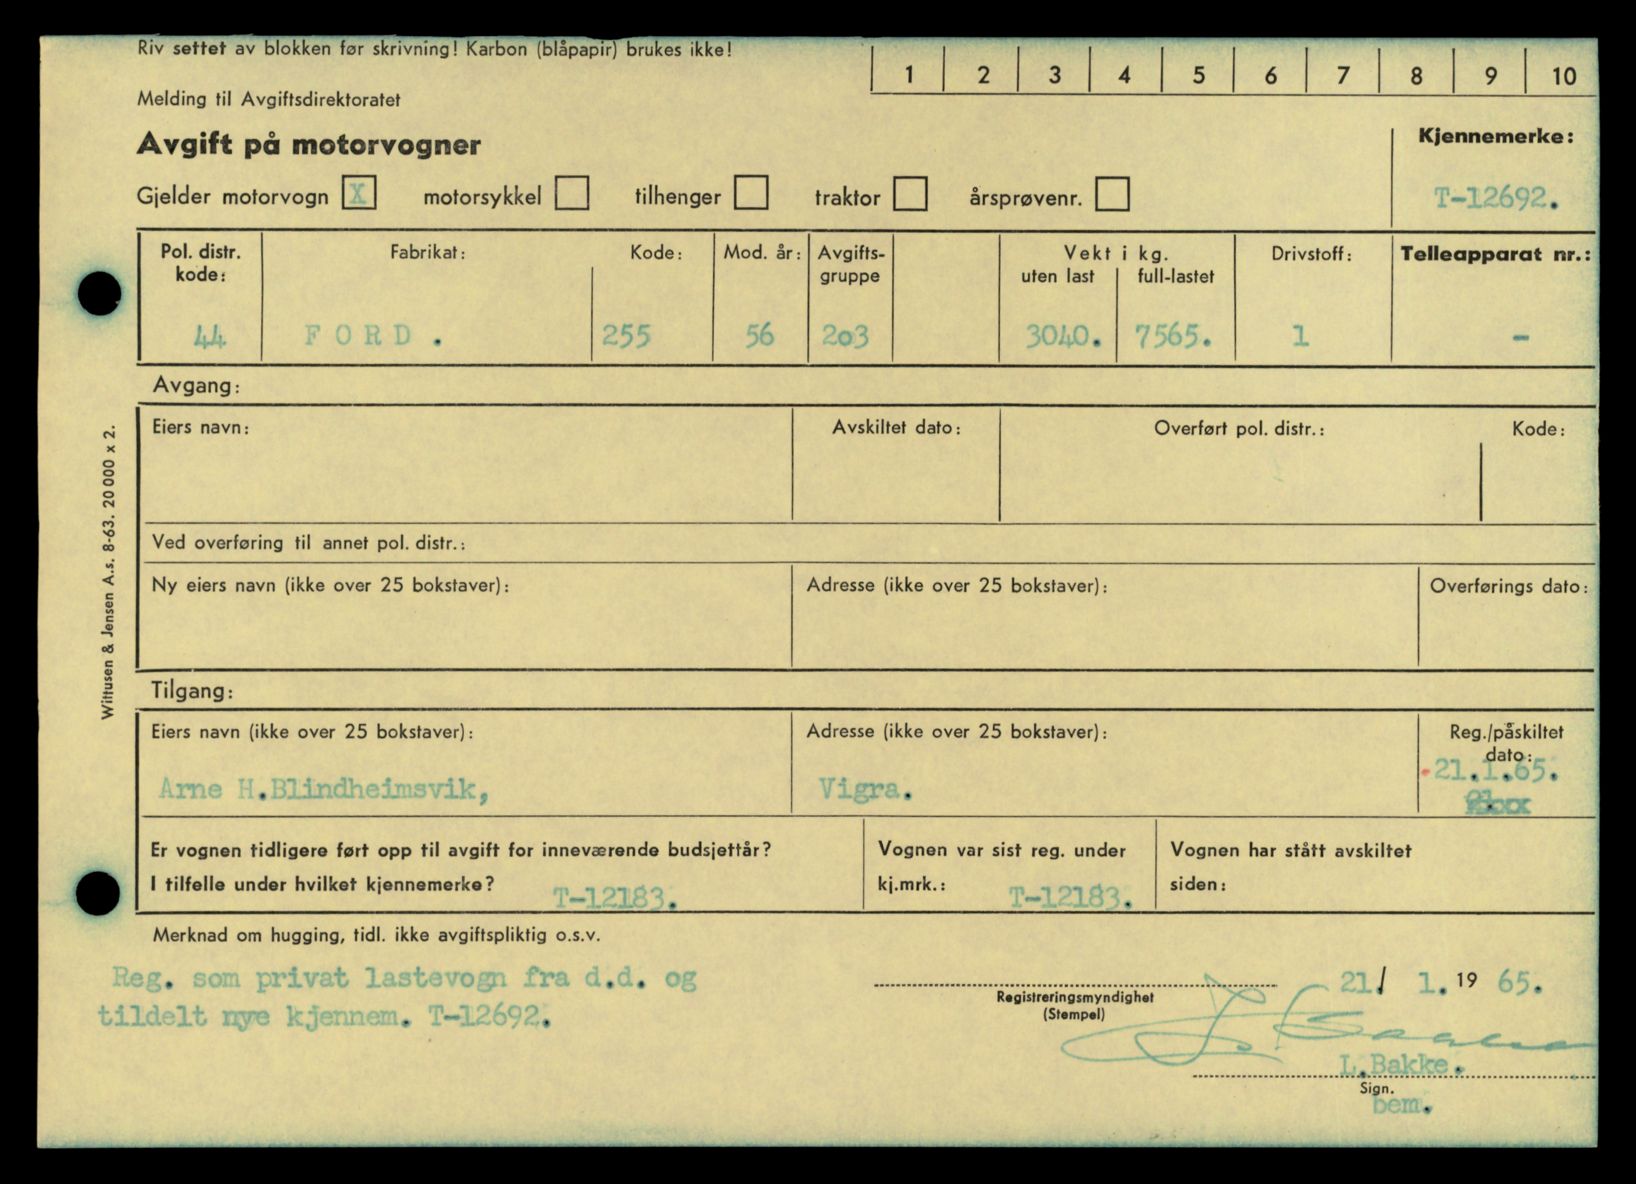 Riv settet av blokken før skrivning! Karbon (blåpapir) brukes ikke!
1 2 3 4 5 6 7 8 9 10
Melding til Avgiftsdirektoratet
Avgift på motorvogner
Kjennemerke:
Gjelder motorvogn X motorsykkel tilhenger traktor årsprøvenr.
T-12692.
Pol. distr. kode: Fabrikat: Kode: Mod. år: Avgifts-gruppe Vekt i kg. uten last full-lastet Drivstoff: Telleapparat nr.:
44 FORD. 255 56 203 3040. 7565. 1 -
Avgang:
Eiers navn: Avskiltet dato: Overført pol. distr.: Kode:
Ved overføring til annet pol. distr.:
Ny eiers navn (ikke over 25 bokstaver): Adresse (ikke over 25 bokstaver): Overførings dato:
Tilgang:
Eiers navn (ikke over 25 bokstaver): Adresse (ikke over 25 bokstaver): Reg./påskiltet dato:
Arne H.Blindheimsvik, Vigra. 21.1.65.
Er vognen tidligere ført opp til avgift for inneværende budsjettår? Vognen var sist reg. under Vognen har stått avskiltet
I tilfelle under hvilket kjennemerke? T-12183. kj.mrk.: T-12183. siden:
Merknad om hugging, tidl. ikke avgiftspliktig o.s.v.
Reg. som privat lastevogn fra d.d. og
tildelt nye kjennem. T-12692.
21/ 1. 19 65.
Registreringsmyndighet
(Stempel)
L. Bakke
L.Bakke.
Sign.
bem.
Wittusen & Jensen A.s. 8-63. 20 000 x 2.